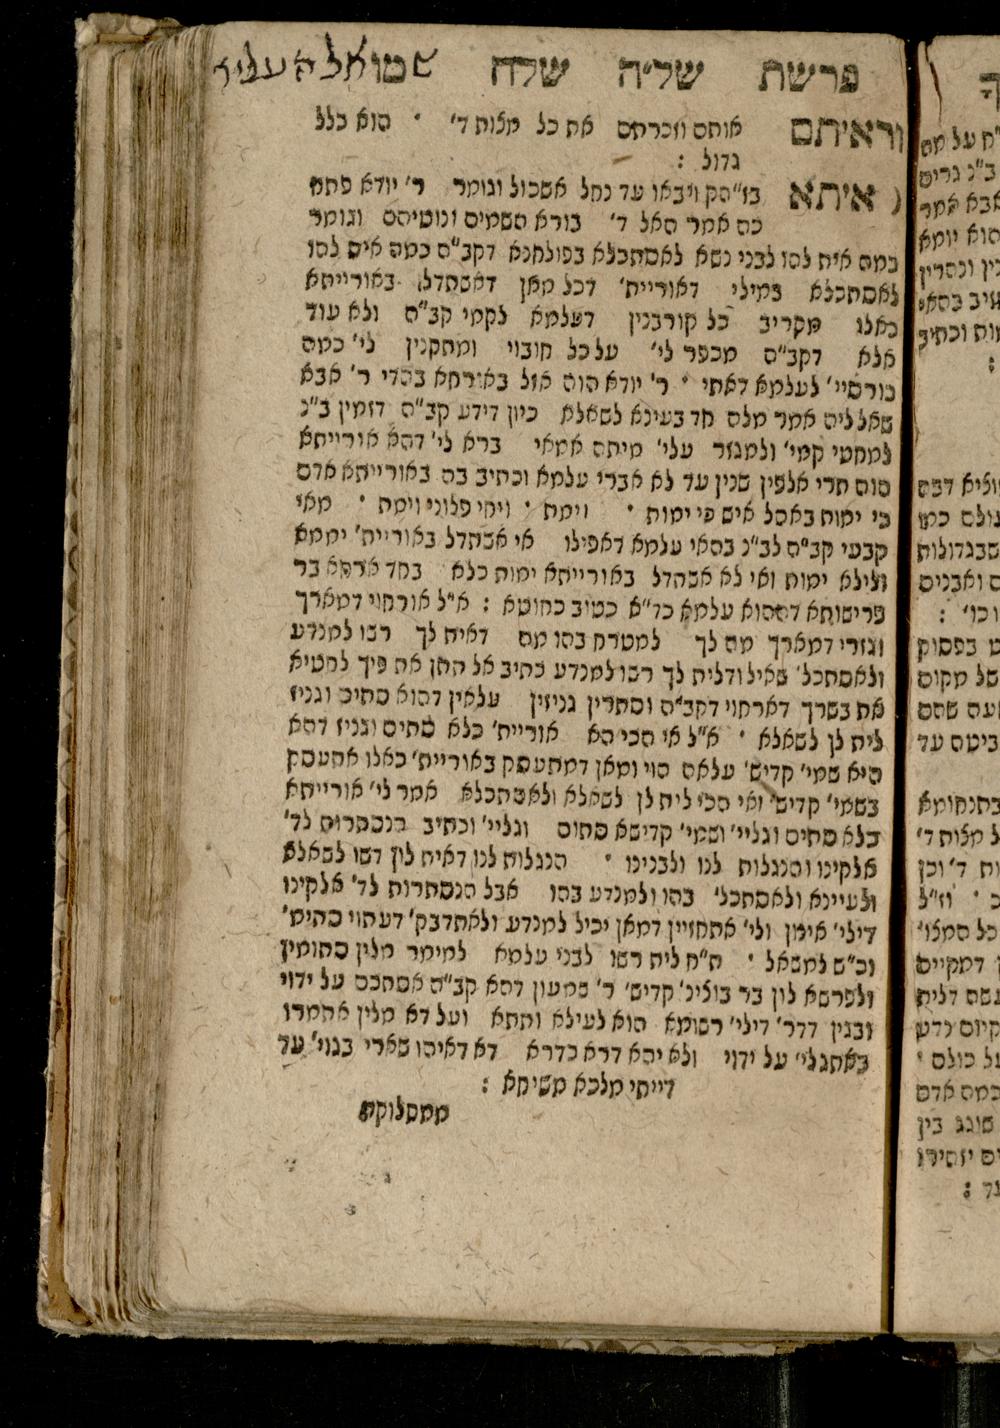 פרשת של״ה שלח
וראיתם אותם וזכרתם את כל מצות ד׳ ׳ הוא כלל
גדול :
( איתא בז״הק ויבאו עד נחל אשכול וגומר ר׳ יודא פתח
כה אמר האל ד׳ בורא השמים ונוטיהם וגומר
כמה אית להו לבני נשא לאסתכלא בפולחנא דקב״ה כמה אית להו
לאסתכלא במילי דאוריית׳ דכל מאן דאשתדל באורייתא
כאלו מקריב כל קורבנין דעלמא לקמי קב״ה ולא עוד
אלא דקב״ה מכפר לי׳ על כל חובוי ומתקנין לי׳ כמה
כורסיי׳ לעלמא דאתי ׳ ר׳ יודא הוה אזל באורחא בהדי ר׳ אבא
שאל ליה אמר מלה חד בעינא לשאלא כיון דידע קב״ה דזמין ב״נ
למחטי קמי׳ ולמגזר עלי׳ מיתה אמאי ברא לי׳ דהא אורייתא
הוה תרי אלפין שנין עד לא אברי עלמא וכתיב בה באורייתא אדם
כי ימות באהל איש כי ימות ׳ וימת ׳ ויחי פלוני וימת ׳ מאי
קבעי קב״ה לב״נ בהאי עלמא דאפילו אי אשתדל באוריית׳ יממא
ולילא ימות ואי לא אשתדל באורייתא ימות כלא בחד ארחא בר
פרישותא דההוא עלמא כד״א כטוב כחוטא : א״ל אורחוי דמארך
וגזרי דמארך מה לך למטרח בהו מה דאית לך רשו למנדע
ולאסתכל׳ שאיל ודלית לך רשו למנדע כתיב אל תתן את פיך לחטיא
את בשרך דארחוי דקב״ה וסתרין גניזין עלאין דהוא סתים וגניז
לית לן לשאלא ׳ א״ל אי הכי הא אוריית׳ כלא סתים וגניז דהא
היא שמי׳ קדיש׳ עלאה הוי ומאן דמתעסק באוריית׳ כאלו אתעסק
בשמי׳ קדיש׳ ואי הכי לית לן לשאלא ולאסתכלא אמר לי׳ אורייתא
כלא סתים וגליי׳ ושמי׳ קדישא סתום וגליי׳ וכתיב הנסתרות לד׳
אלקינו והנגלות לנו ולבנינו ׳ הנגלות לנו דאית לון רשו לשאלא
ולעיינא ולאסתכל׳ בהו ולמנדע בהו אבל הנסתרות לד׳ אלקינו
דילי׳ אינון ולי׳ אתחזיין דמאן יכיל למנדע ולאתדבק׳ דעתוי סתים׳
וכ״ש למשאל ׳ ת״ח לית רשו לבני עלמא למימר מלין סתומין
ולפרשא לון בר בוצינ׳ קדיש׳ ר׳ שמעון דהא קב״ה אסתכם על ידוי
ובגין דדר׳ דילי׳ רשומא הוא לעילא ותתא ועל דא מלין אתמרו
באתגלי׳ על ידוי ולא יהא דרא כדרא דא דאיהו שארי בגוי׳ עד
דייתי מלכא משיחא :